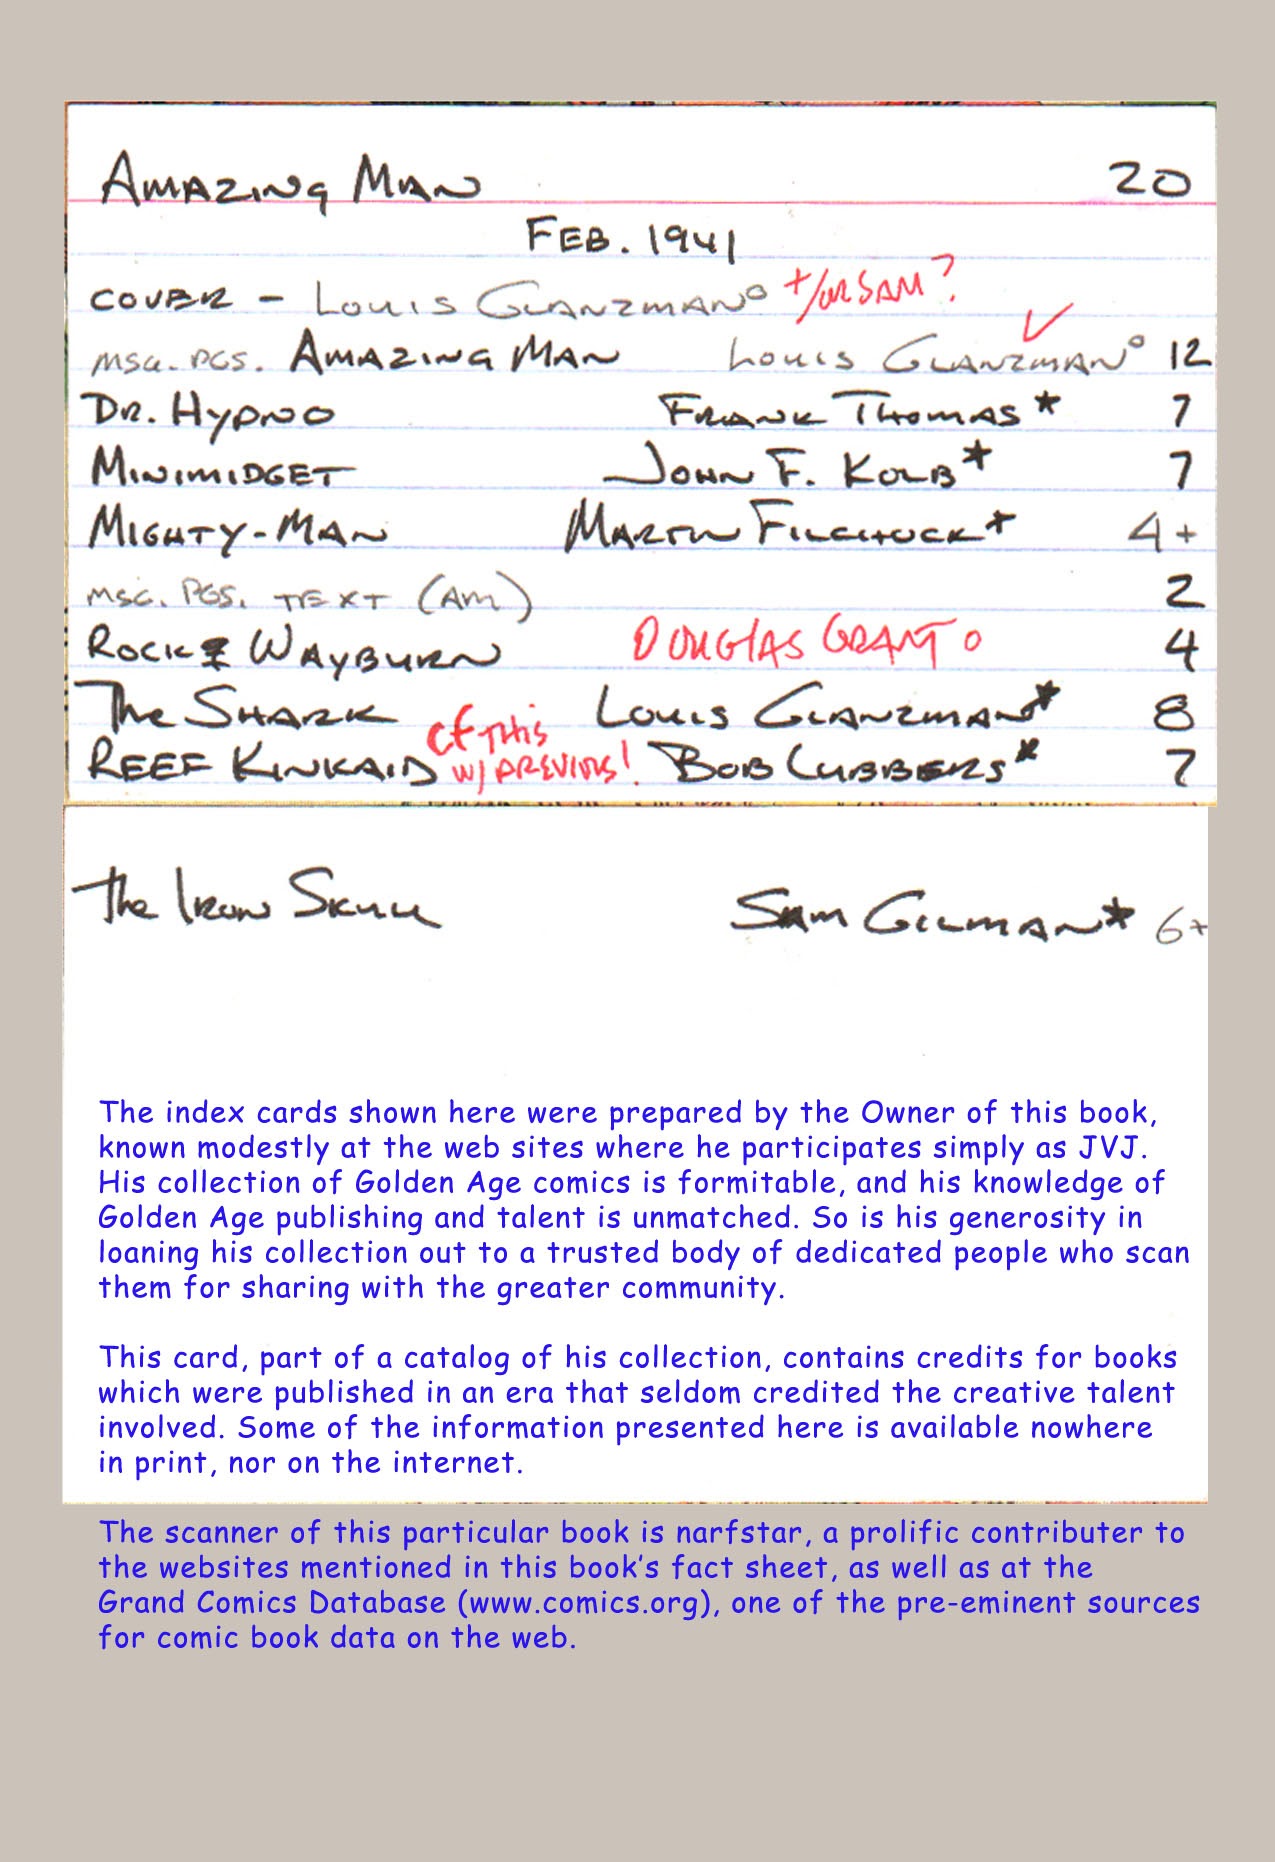 Amazing Man 20
Feb. 1941
Cover - Louis Glanzman° +/or Sam?
msg. pgs. Amazing Man Louis Glanzman° ✓ 12
Dr. Hypno Frank Thomas* 7
Minimidget John F. Kolb* 7
Mighty-Man Martin Filchock+ 4+
msg. pgs. text (AM) 2
Rocke Wayburn Douglas Grant ° 4
The Shark Louis Glanzman* 8
Reef Kinkaid cf this w/ previous! Bob Lubbers* 7
The Iron Skull Sam Gilman* 6+
The index cards shown here were prepared by the Owner of this book,
known modestly at the web sites where he participates simply as JVJ.
His collection of Golden Age comics is formitable, and his knowledge of
Golden Age publishing and talent is unmatched. So is his generosity in
loaning his collection out to a trusted body of dedicated people who scan
them for sharing with the greater community.
This card, part of a catalog of his collection, contains credits for books
which were published in an era that seldom credited the creative talent
involved. Some of the information presented here is available nowhere
in print, nor on the internet.
The scanner of this particular book is narfstar, a prolific contributer to
the websites mentioned in this book's fact sheet, as well as at the
Grand Comics Database (www.comics.org), one of the pre-eminent sources
for comic book data on the web.